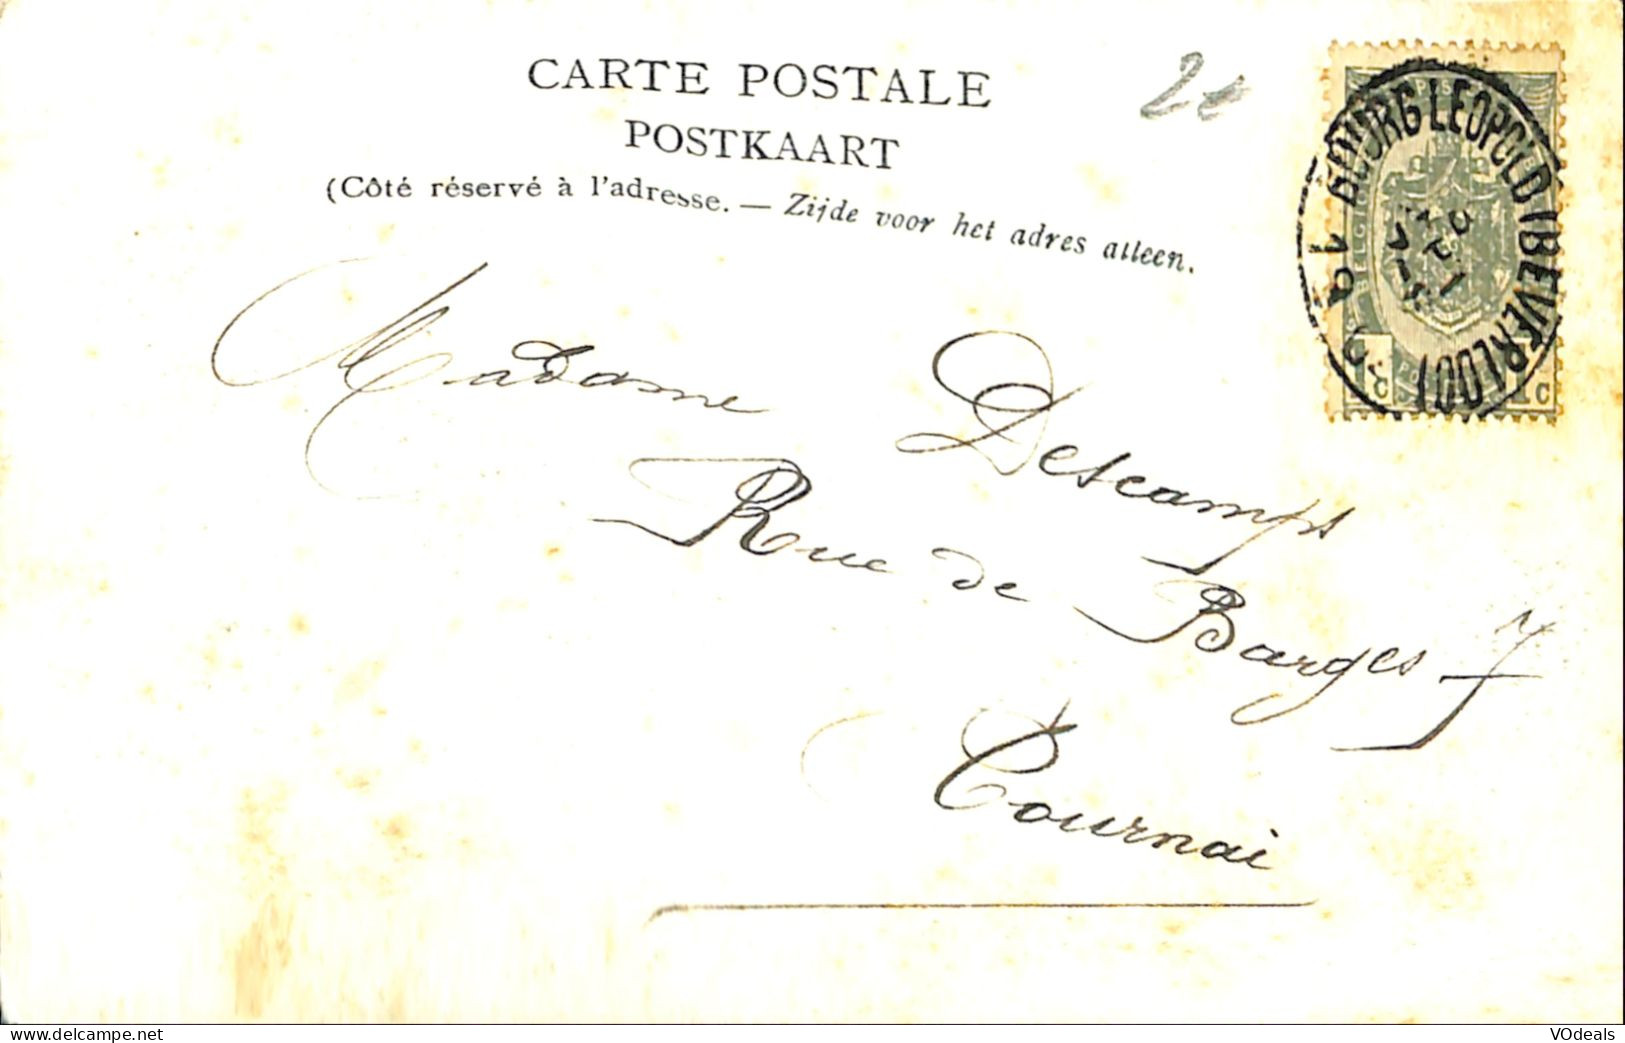 CARTE POSTALE
POSTKAART
(Côté réservé à l'adresse. — Zijde voor het adres alleen.
2€
BOURG LEOPOLD (BEVERLOO)
BELGIQUE
1 C
Madame Descamps
Rue de Barges 7
Tournai
www.delcampe.net
VOdeals